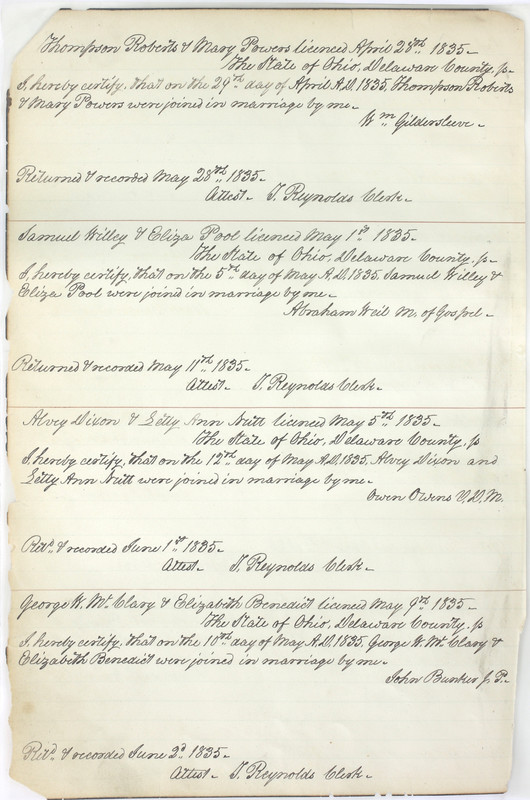 Thompson Roberts & Mary Powers licenced April 28th 1835.
The State of Ohio, Delaware County, ss
I, hereby certify, that on the 29th day of April A.D. 1835, Thompson Roberts
& Mary Powers were joined in marriage by me.
Wm Gildersleeve.
Returned & recorded May 28th 1835.
Attest. T. Reynolds Clerk.
Samuel Willey & Eliza Pool licenced May 1st 1835.
The State of Ohio, Delaware County, ss
I, hereby certify, that on the 5th day of May A.D. 1835, Samuel Willey &
Eliza Pool were joined in marriage by me.
Abraham Weil M. of Gospel.
Returned & recorded May 11th 1835.
Attest. T. Reynolds Clerk.
Alvey Dixon & Letty Ann Nutt licenced May 5th 1835.
The State of Ohio, Delaware County, ss
I, hereby certify, that on the 12th day of May A.D. 1835, Alvey Dixon and
Letty Ann Nutt were joined in marriage by me.
Owen Owens V.D.M.
Retd. & recorded June 1st 1835.
Attest. T. Reynolds Clerk.
George W. Mc Clary & Elizabeth Benedict licenced May 9th 1835.
The State of Ohio, Delaware County, ss
I, hereby certify, that on the 10th day of May A.D. 1835, George W. Mc Clary &
Elizabeth Benedict were joined in marriage by me.
John Bunker J.P.
Retd. & recorded June 2d 1835.
Attest. T. Reynolds Clerk.